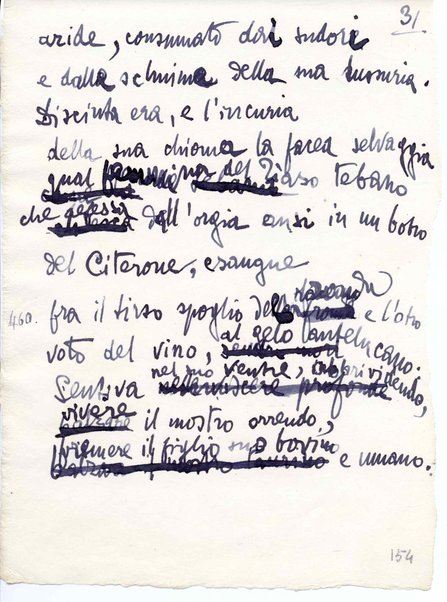 31
aride, consunto dai sudori
e dalla schiuma della sua lussuria.
Discinta era, e l'incuria
della sua chioma la facea selvaggia
qual femmina del Tiaso tebano
che dall'orgia ansi in un botro
del Citerone, esangue
460. fra il tirso spoglio della fronda e l'otro
voto del vino, al gelo antelucano.
Sentiva nel suo ventre, inorridendo,
vivere il mostro orrendo,
fremere il figlio suo bovino e umano.
154